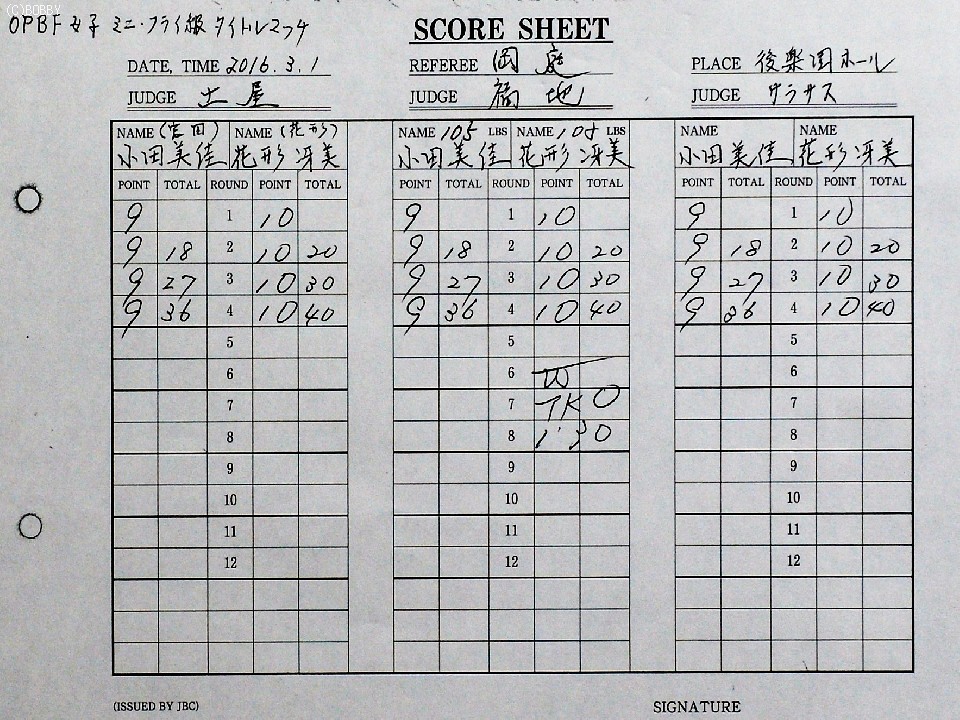 (C)BOBBY
OPBF女子 ミニ・フライ級 タイトルマッチ
SCORE SHEET
DATE, TIME 2016.3.1 REFEREE 岡庭 PLACE 後楽園ホール
JUDGE 土屋 JUDGE 福地 JUDGE サラサス
NAME (窪田) NAME (花形) NAME 105 LBS NAME 105 LBS NAME NAME
小田美佳 花形冴美 小田美佳 花形冴美 小田美佳 花形冴美
POINT TOTAL ROUND POINT TOTAL POINT TOTAL ROUND POINT TOTAL POINT TOTAL ROUND POINT TOTAL
9 1 10 9 1 10 9 1 10
9 18 2 10 20 9 18 2 10 20 9 18 2 10 20
9 27 3 10 30 9 27 3 10 30 9 27 3 10 30
9 36 4 10 40 9 36 4 10 40 9 36 4 10 40
5 5 5
6 6 W 6
7 7 TKO 7
8 8 1'30 8
9 9 9
10 10 10
11 11 11
12 12 12
(ISSUED BY JBC) SIGNATURE